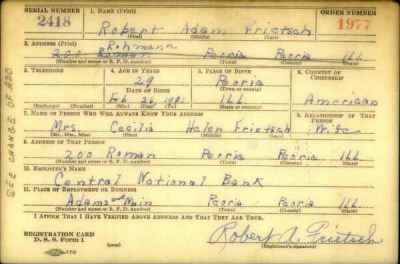 SERIAL NUMBER 1. NAME (Print) ORDER NUMBER
2418 Robert Adam Frietsch 1977
(First) (Middle) (Last)
2. ADDRESS (Print) Rohmann
200 Roman Peoria Peoria ILL
(Number and street or R. F. D. number) (Town) (County) (State)
3. TELEPHONE 4. AGE IN YEARS 5. PLACE OF BIRTH 6. COUNTRY OF CITIZENSHIP
29 Peoria
DATE OF BIRTH
Feb ILL American
(Exchange) (Number) (Mo.) (Day) (Yr.) (State or country)
7. NAME OF PERSON WHO WILL ALWAYS KNOW YOUR ADDRESS 8. RELATIONSHIP OF THAT PERSON
Mrs. Cecilia Helen Frietsch Wife
(Mr., Mrs., Miss) (First) (Middle) (Last)
9. ADDRESS OF THAT PERSON
200 Roman Peoria Peoria ILL
(Number and street or R. F. D. number) (Town) (County) (State)
10. EMPLOYER'S NAME
Central National Bank
11. PLACE OF EMPLOYMENT OR BUSINESS
Adams and Main Peoria Peoria ILL
(Number and street or R. F. D. number) (Town) (County) (State)
I AFFIRM THAT I HAVE VERIFIED ABOVE ANSWERS AND THAT THEY ARE TRUE.
REGISTRATION CARD
D. S. S. Form 1 (over) Robert A. Frietsch
(Registrant's signature)
SEE CHANGE OF ADD